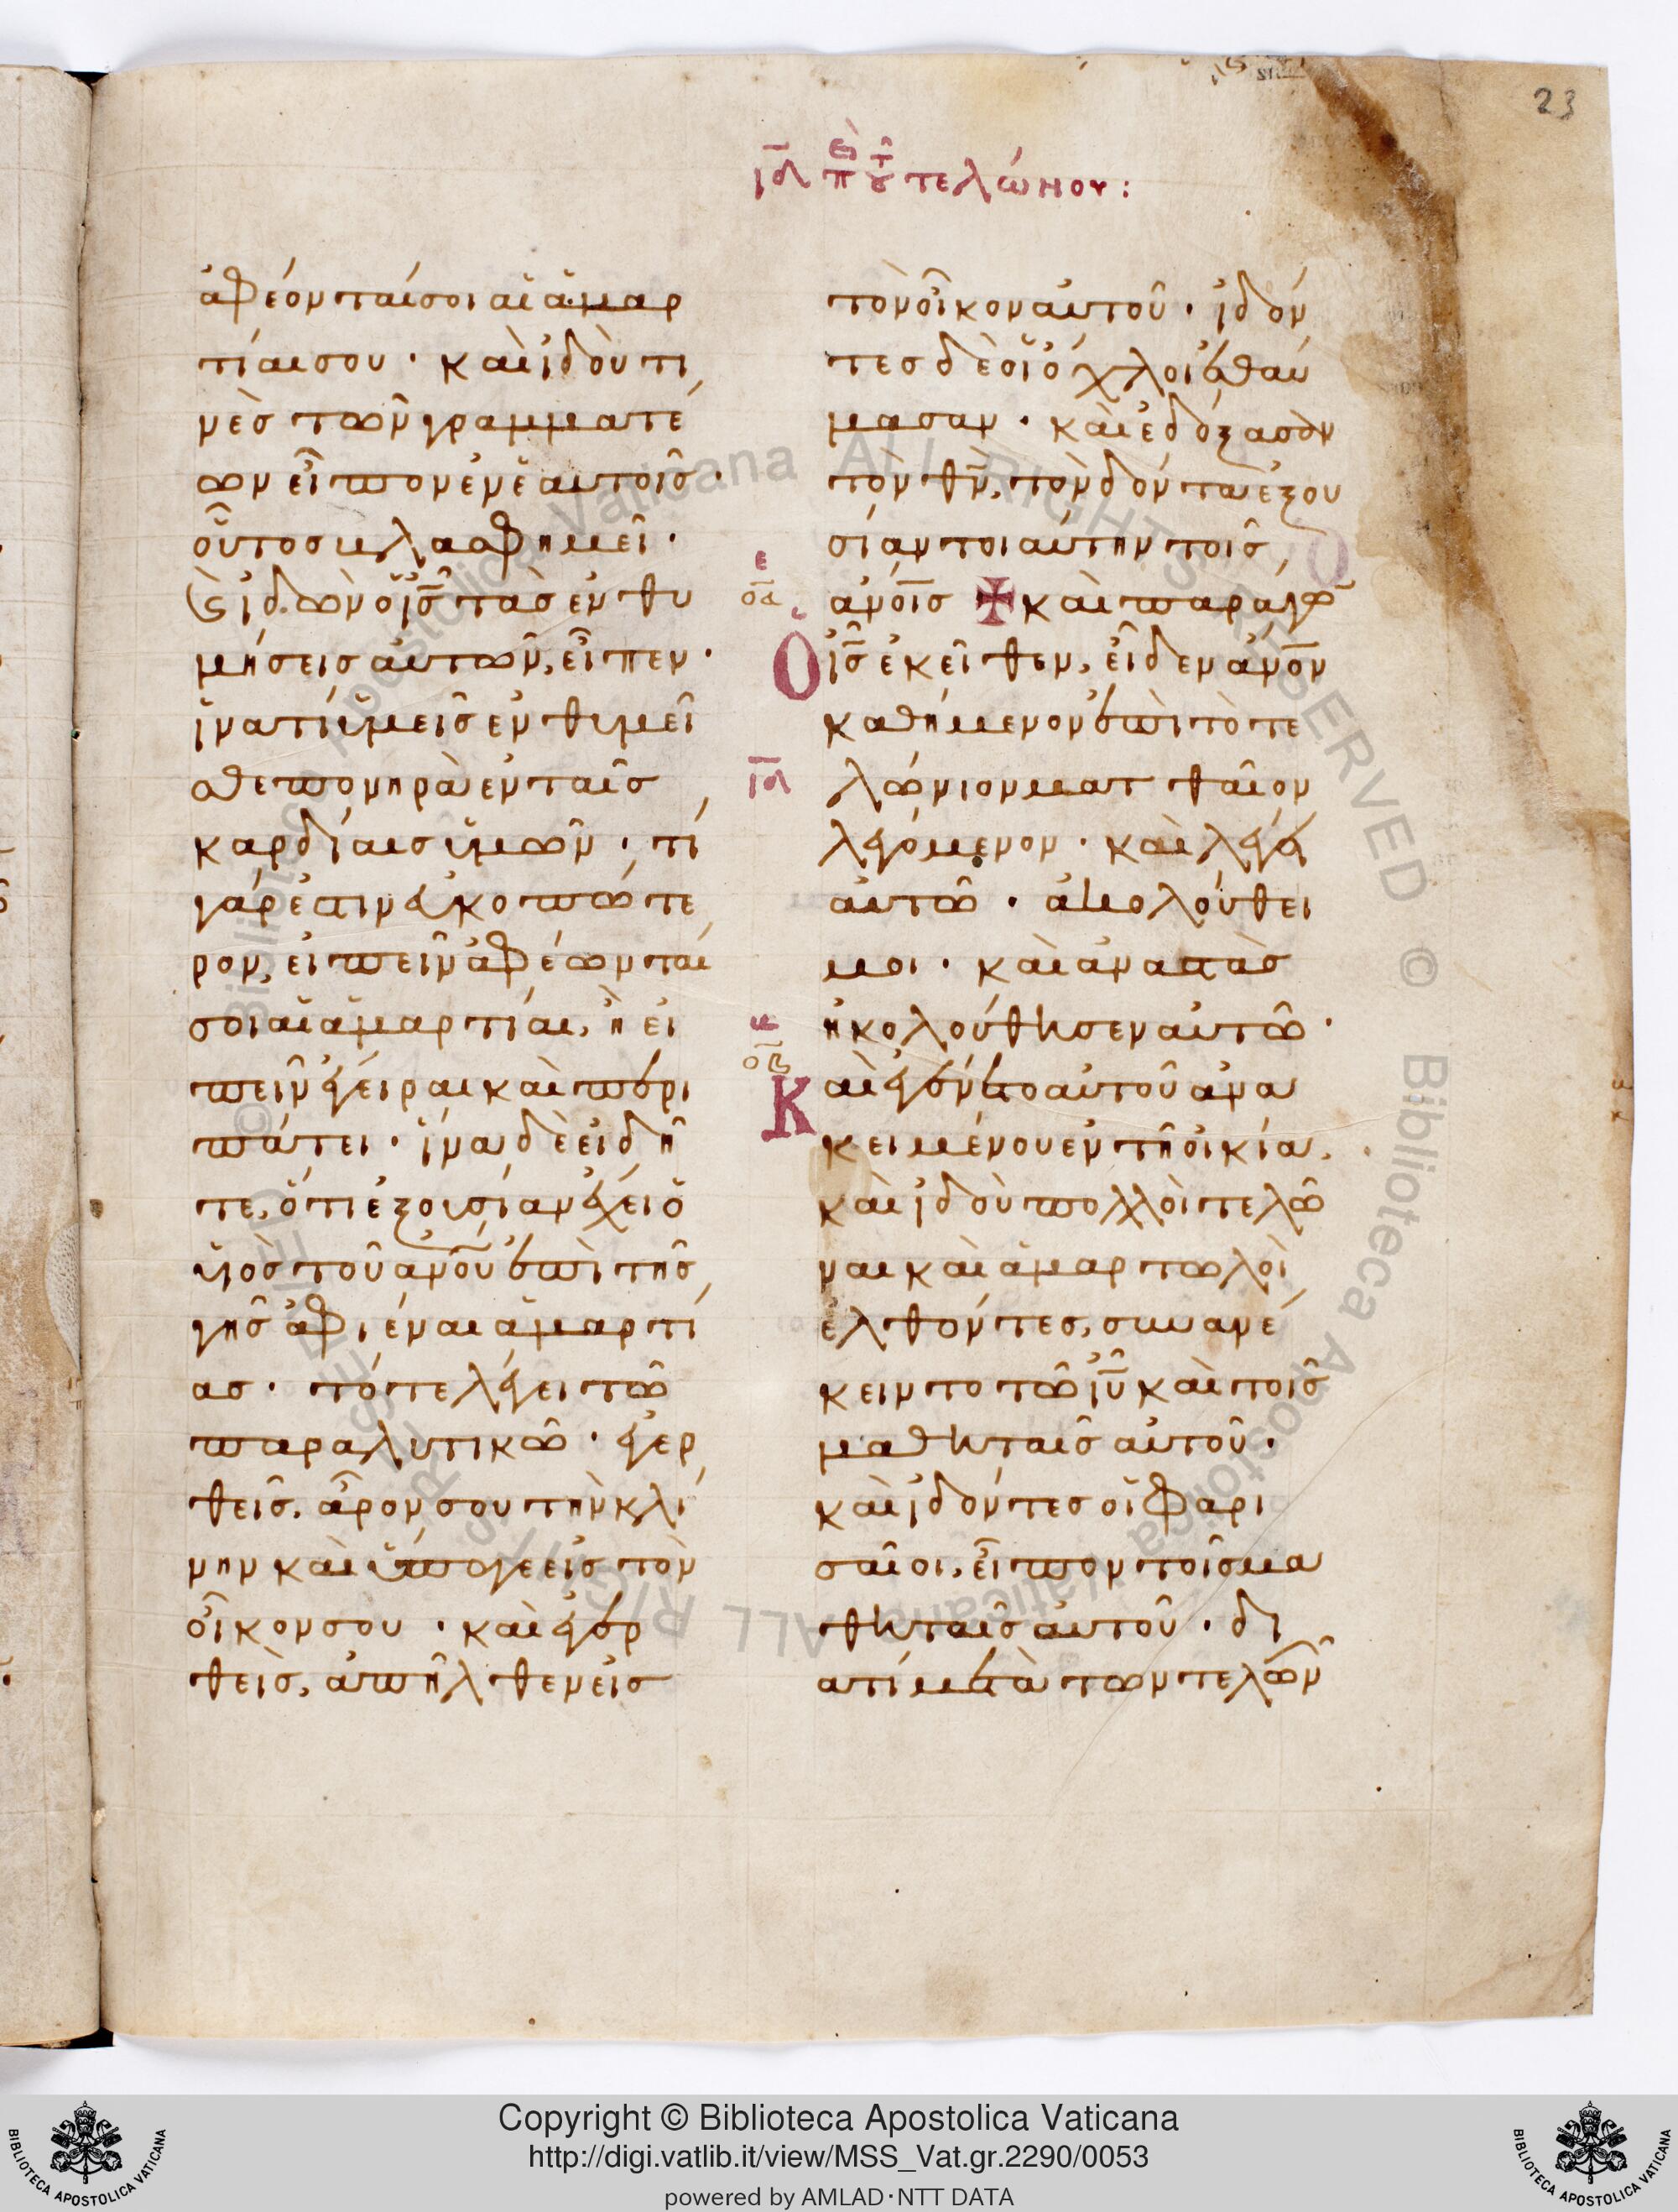 23
ιδ πε του τελώνου:
ἀφέονταί σοι αἱ ἁμαρ
τίαι σου · καὶ ἰδού τι
νὲς τῶν γραμματέ
ων εἶπον ἐν ἑαυτοῖς ·
οὗτος βλασφημεῖ ·
καὶ ἰδὼν ὁ ις τὰς ἐνθυ
μήσεις αὐτῶν, εἶπεν ·
ἱνατί ὑμεῖς ἐνθυμεῖ
σθε πονηρὰ ἐν ταῖς
καρδίαις ὑμῶν · τί
γάρ ἐστιν εὐκοπώτε
ρον, εἰπεῖν ἀφέωνταί
σοι αἱ ἁμαρτίαι, ἢ εἰ
πεῖν ἔγειραι καὶ περι
πάτει · ἵνα δὲ εἰδῆ
τε, ὅτι ἐξουσίαν ἔχει ὁ
υἱὸς τοῦ ανου ἐπὶ τῆς
γῆς ἀφιέναι ἁμαρτί
ας · τότε λέγει τῶ
παραλυτικῶ · ἐγερ
θεὶς, ἆρόν σου τὴν κλί
νην καὶ ὕπαγε εἰς τὸν
οἶκον σου · καὶ ἐγερ
θεὶς, ἀπῆλθεν εἰς
τὸν οἶκον αὐτοῦ · ἰδόν
τες δὲ οἱ ὄχλοι ἐθαύ
μασαν · καὶ ἐδόξασαν
τὸν θν, τὸν δόντα ἐξου
σίαν τοιαύτην τοῖς
ε
οα
ανοις ✠ καὶ παράγω
Ὁ ις ἐκεῖθεν, εἶδεν ανον
καθήμενον ἐπὶ τὸ τε
ιδ
λώνιον ματθαῖον
λεγόμενον · καὶ λέγει
αὐτῶ · ἀκολούθει
μοι · καὶ ἀναστὰς
ἠκολούθησεν αὐτῶ ·
οβ
Καὶ ἐγένετο αὐτοῦ ἀνα
κειμένου ἐν τῆ οἰκία,
καὶ ἰδοὺ πολλοὶ τελῶ
ναι καὶ ἁμαρτωλοὶ
ἐλθόντες, συνανέ
κειντο τῶ ιυ καὶ τοῖς
μαθηταῖς αὐτοῦ ·
καὶ ἰδόντες οἱ φαρι
σαῖοι, εἶπον τοῖς μα
θηταῖς αὐτοῦ · δι
ατί μετὰ τῶν τελωνῶν
Copyright © Biblioteca Apostolica Vaticana
http://digi.vatlib.it/view/MSS_Vat.gr.2290/0053
powered by AMLAD·NTT DATA
BIBLIOTECA APOSTOLICA VATICANA
BIBLIOTECA APOSTOLICA VATICANA